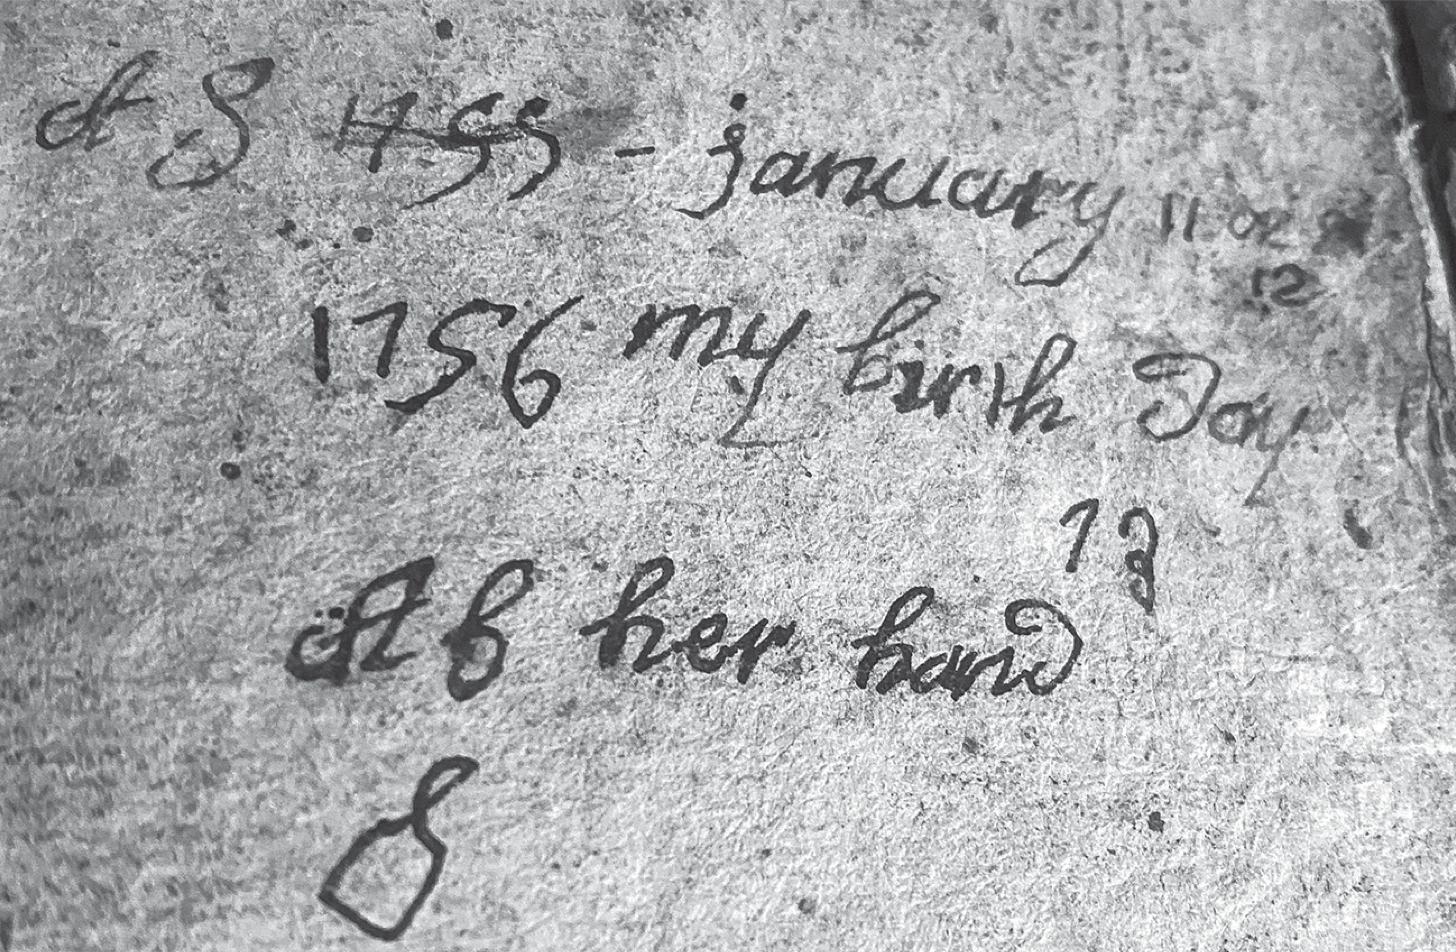 A S 1755 - january 11 or
12
1756 my birth Day
13
A b her hand